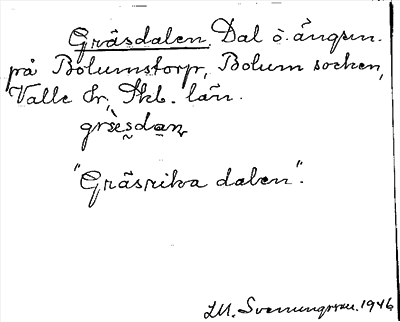 Gräsdalen. Dal o. ängsm.
på Bolumstorp, Bolum socken,
Valle hr, Skb. län.
"Gräsrika dalen".
LM. Svenungsson. 1946